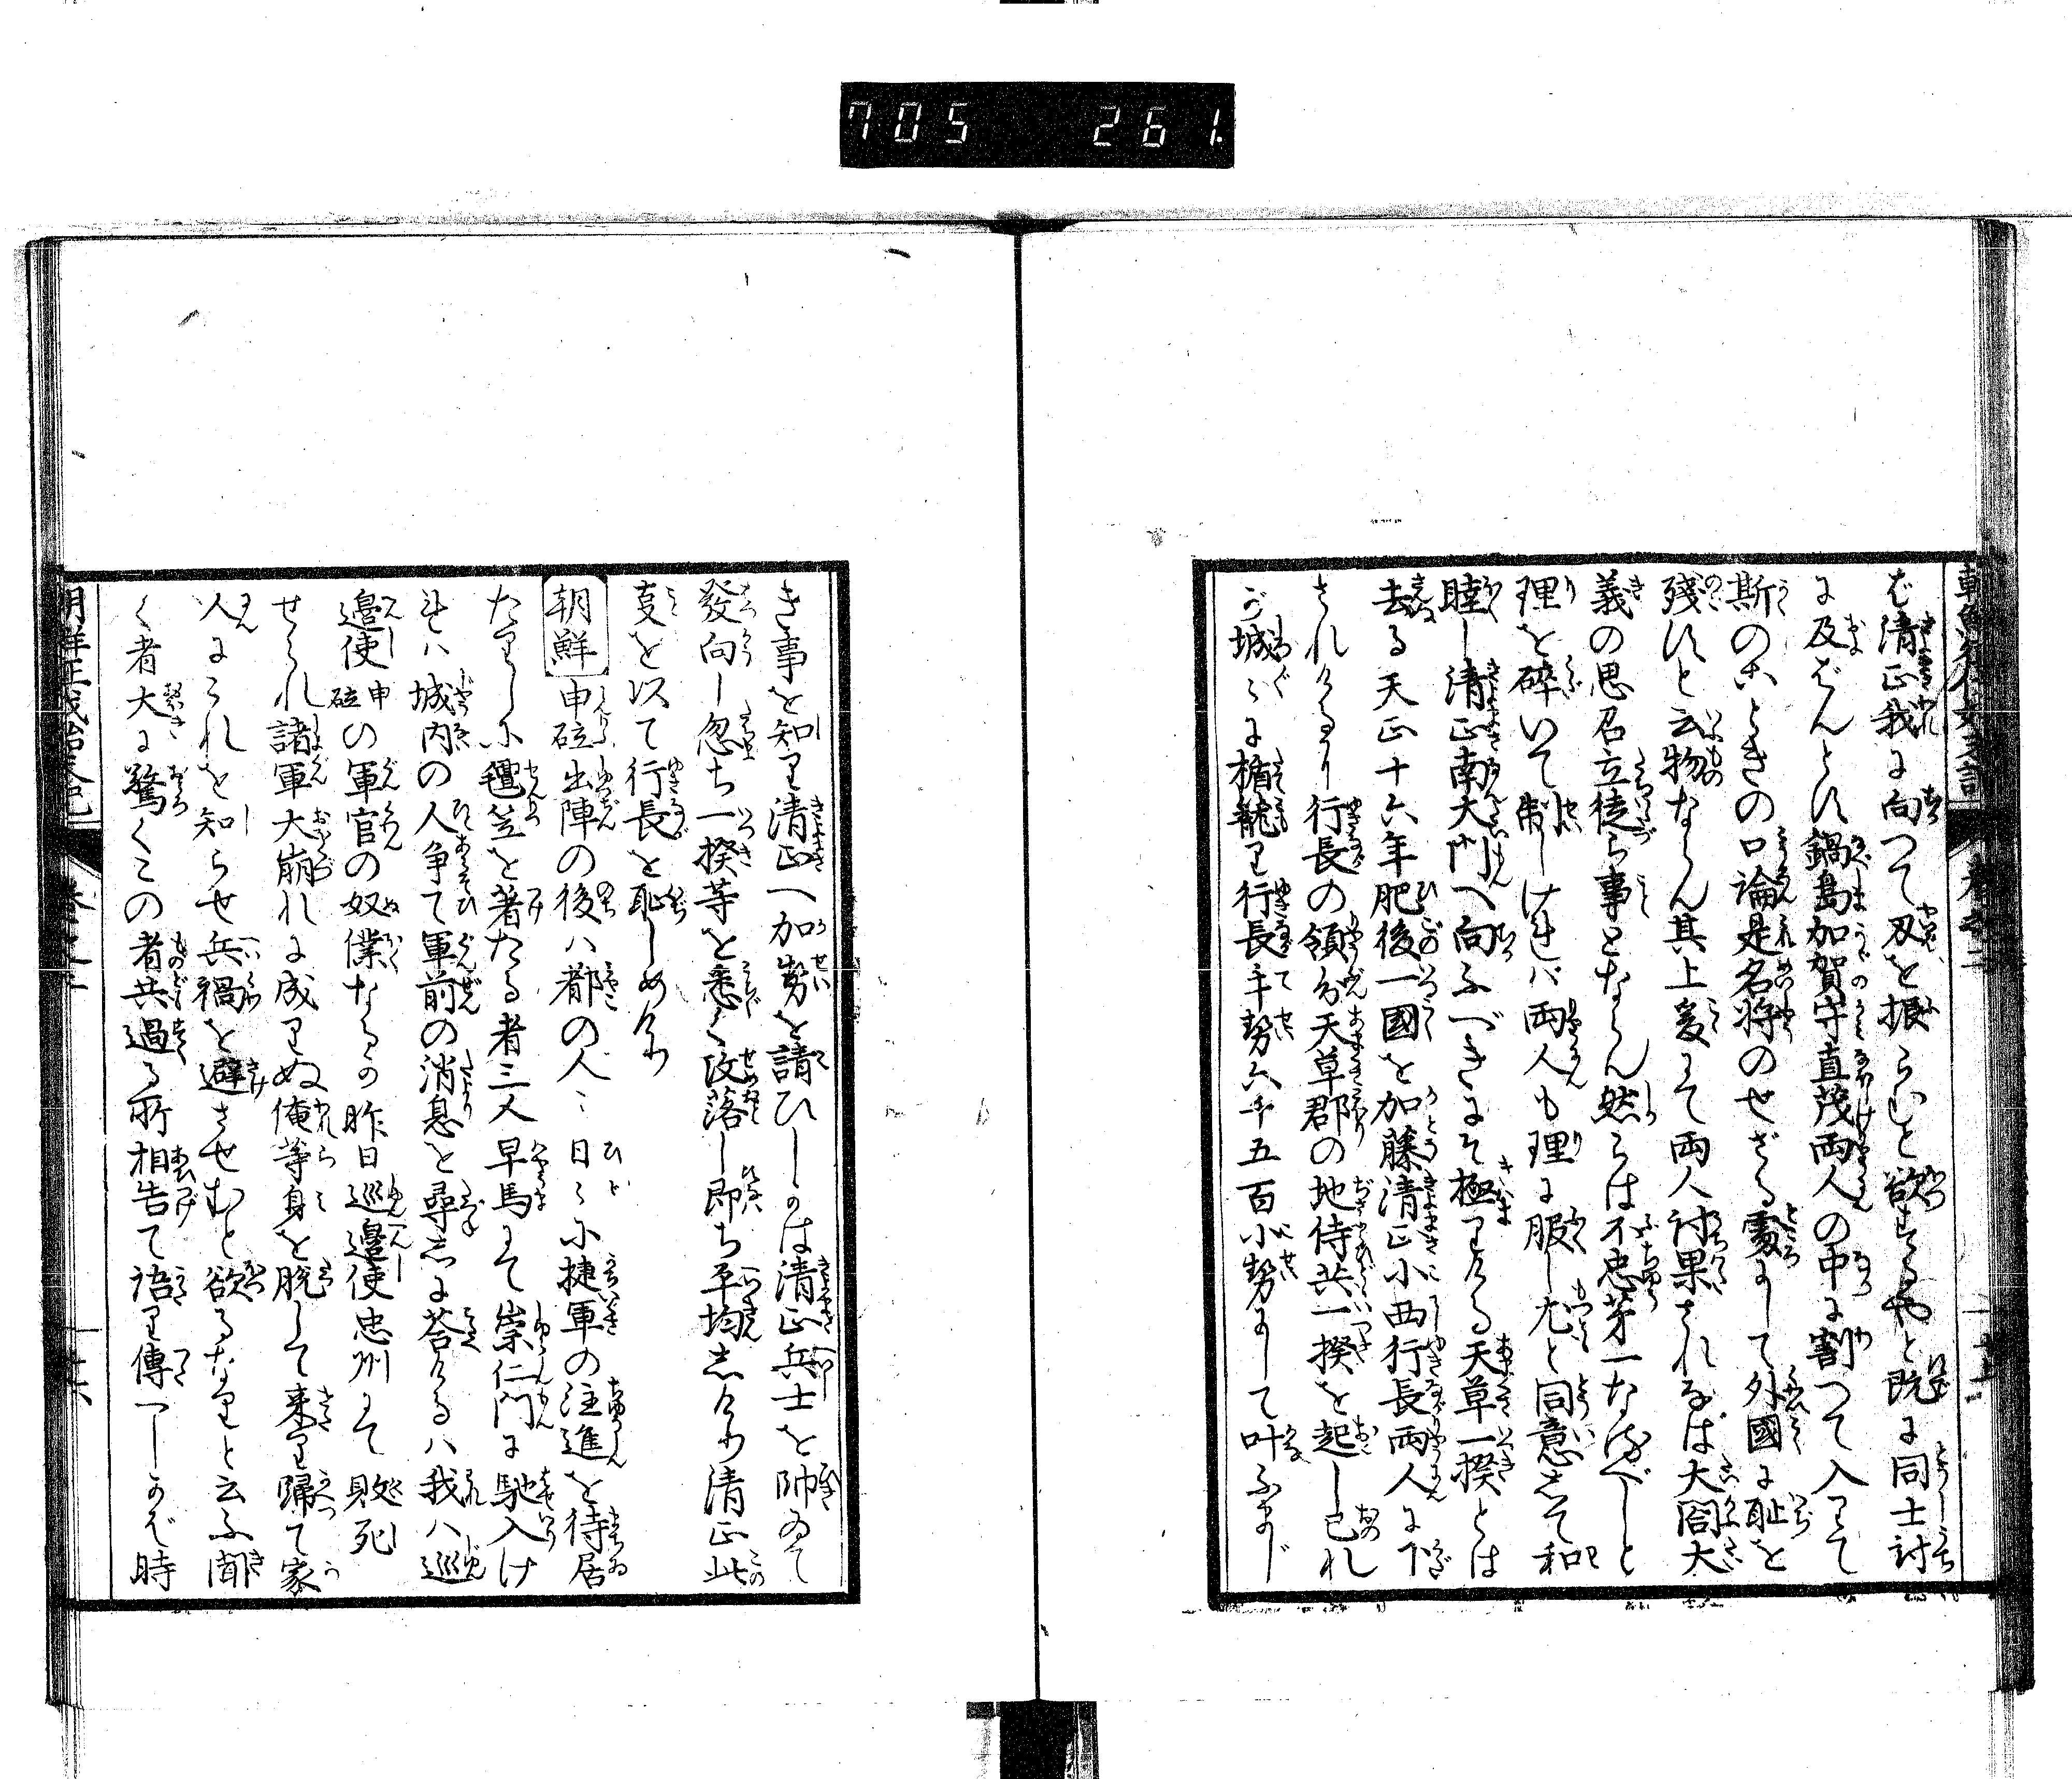 705 261.
ば清正我に向つて刄を振らむと欲するやと既に同士討
に及ばんとす鍋島加賀守直茂両人の中に割つて入りて
斯のごときの口論是名将のせざる處にして外國に恥を
殘すと云物ならん其上爰にて両人討果されなば大閤大
義の思召立徒ら事とならん然らは不忠㐧一なるべしと
理を碎いて制しけれバ両人も理に服し尤と同意して和
睦し清正南大門へ向ふべきにぞ極りける天草一揆とは
去る天正十六年肥後一國を加藤清正小西行長両人に下
されけるに行長の領分天草郡の地侍共一揆を起し己れ
が城々に楯籠り行長手勢六千五百小勢にして叶ふまじ
き事を知り清正へ加勢を請ひしかは清正兵士を帥ゐて
發向し忽ち一揆等を悉く攻落し即ち平均しけり清正此
事を以て行長を恥しめけり
朝鮮 申砬出陣の後ハ都の人々日々に捷軍の注進を待居
たりしに氊笠を著たる者三人早馬にて崇仁門に馳入け
れハ城内の人争て軍前の消息を尋しに荅けるハ我ハ巡
邉使申砬の軍官の奴僕なるか昨日巡邉使忠州にて敗死
せられ諸軍大崩れに成りぬ俺等身を脱して来り歸て家
人にこれを知らせ兵禍を避させむと欲るなりと云ふ聞
く者大に驚くこの者共過る所相告て語り傳へしかば時